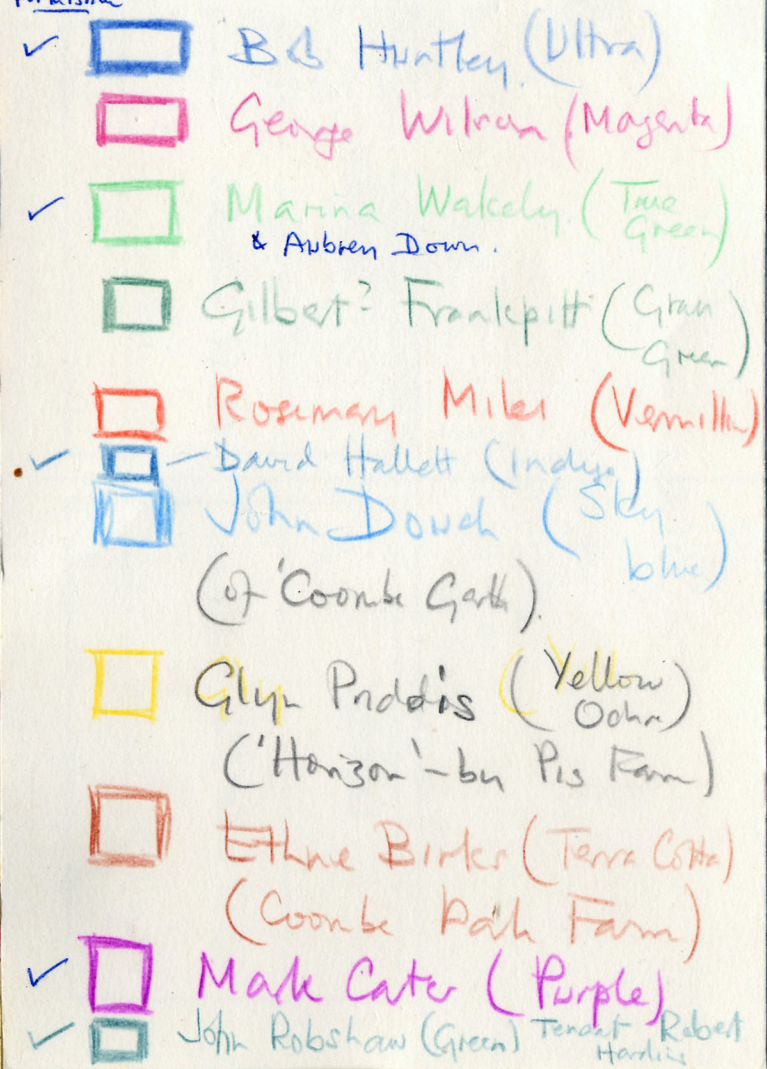 Permission
✓ Bob Huntley (Ultra)
George Wilson (Magenta)
✓ Marina Wakely (True
Green)
& Aubrey Down.
Gilbert? Frankpitt (Gran
Green)
Rosemary Miles (Vermillin)
✓ David Hallett (Indigo)
John Dowch (Sky
blue)
(of 'Coombe Garth')
Glyn Priddis (Yellow
Ochre)
('Horizon' - by Pis Farm)
Ethne Birks (Terra Cotta)
(Coombe Farm)
✓ Mark Cater (Purple)
✓ John Robshaw (Green) Tenant Robert